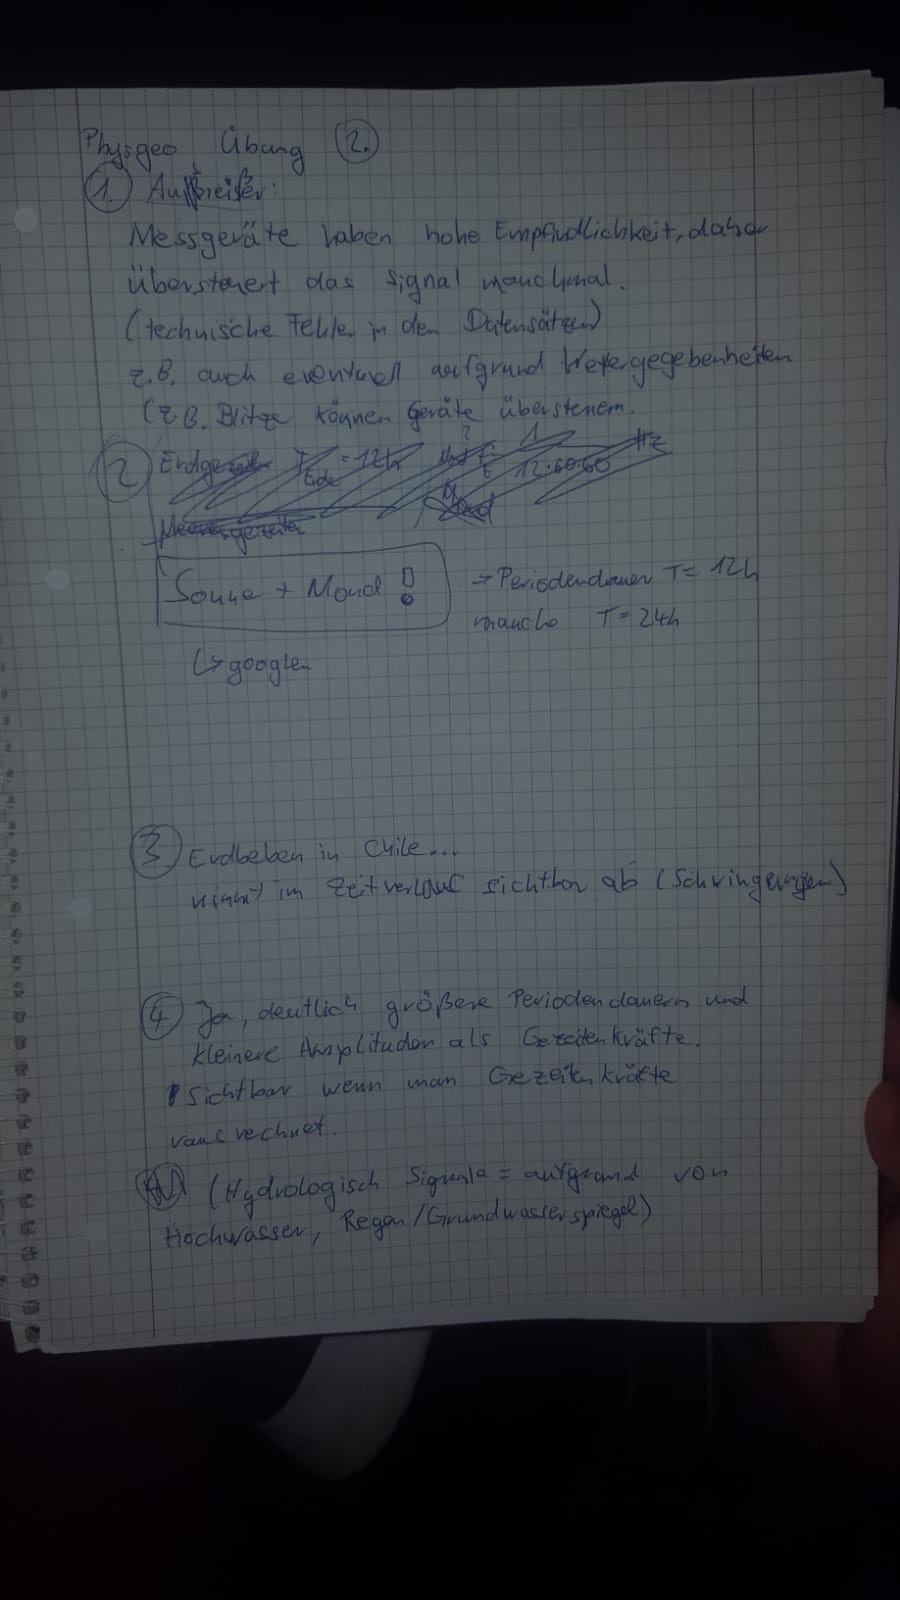 Physgeo Übung 2.
1. Ausreißer:
Messgeräte haben hohe Empfindlichkeit, daher
übersteuert das Signal manchmal.
(technische Fehler in den Datensätzen)
z.B. auch eventuell aufgrund Wettergegebenheiten
(z.B. Blitze können Geräte übersteuern.
2 T Erde = 12h 1 Hz
12·60·60
Meeresgezeiten
Sonne + Mond! → Periodendauer T = 12h
manche T = 24h
↳ googlen
3 Erdbeben in Chile...
nimmt im Zeitverlauf sichtbar ab (Schwingungen)
4 Ja, deutlich größere Periodendauern und
kleinere Amplituden als Gezeitenkräfte.
Sichtbar wenn man Gezeitenkräfte
rausrechnet.
(Hydrologisch Signale = aufgrund von
Hochwasser, Regen/Grundwasserspiegel)